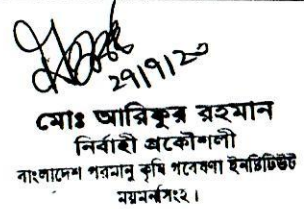 29/9/20
মোঃ আরিফুর রহমান
নির্বাহী প্রকৌশলী
বাংলাদেশ পরমাণু কৃষি গবেষণা ইনষ্টিটিউট
ময়মনসিংহ।